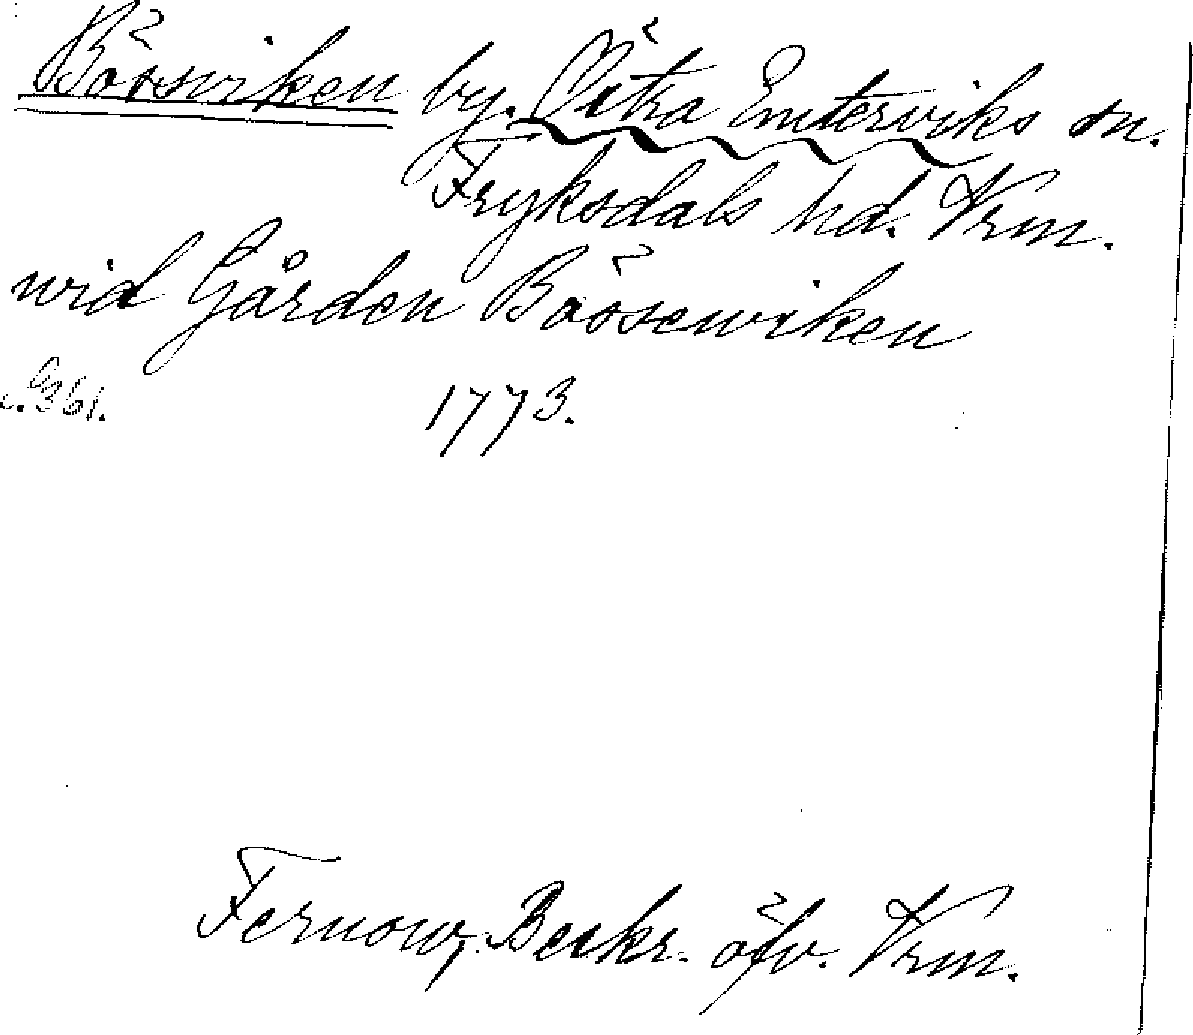 Bösviken by. Östra Emterviks sn.
Fryksdals hd. Vrm.
wid Gården Böösewiken
s. 361. 1773.
Fernow, Beskr. öfv. Vrm.